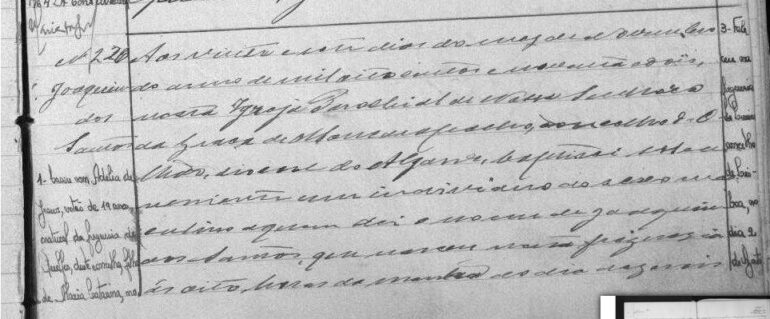 Nº 220
Joaquim
dos
Santos
Aos vinte e sete dias do mez de Dezembro
do anno de mil oito centos e noventa e dois,
nesta Igreja Parochial de Nossa Senhora
da Graça de Moncarapacho, concelho d'O-
lhão, diocese do Algarve, baptisei solem-
nemente um individuo do sexo mas-
culino a quem dei o nome de Joaquim
dos Santos, que nasceu nesta freguezia
ás oito horas da manhã do dia dezaseis
1- Casou com Adelia de
Jesus, natural da freguezia de
Quelfes, deste concelho, filha
de Maria Catarina, no
3- Fale
ceu na
freguesia
concelho
de Lis
boa, no
dia 2
de Agosto